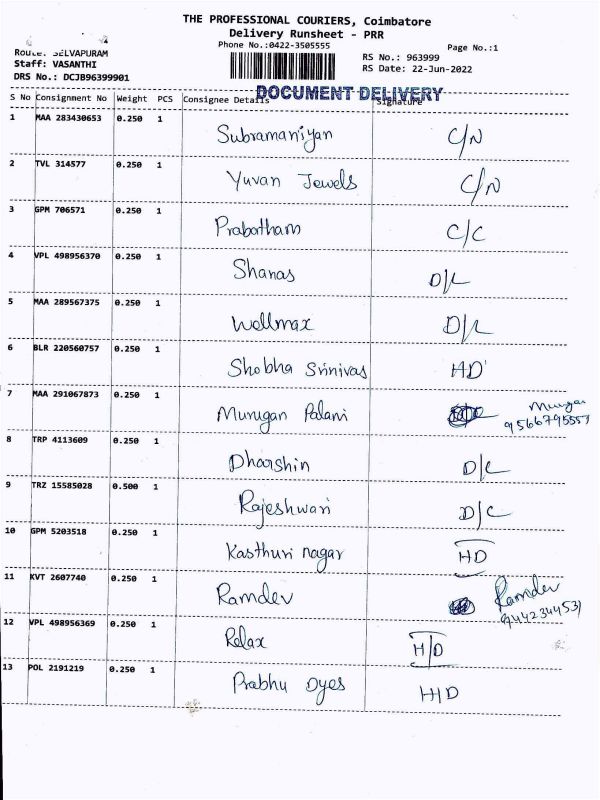 THE PROFESSIONAL COURIERS, Coimbatore
Delivery Runsheet - PRR
Phone No.:0422-3505555
Page No.:1
Route: SELVAPURAM
Staff: VASANTHI
DRS No.: DCJB96399901
RS No.: 963999
RS Date: 22-Jun-2022
DOCUMENT DELIVERY
S No Consignment No Weight PCS Consignee Details Signature
1 MAA 283430653 0.250 1 Subramaniyan C/N
2 TVL 314577 0.250 1 Yuvan Jewels C/N
3 GPM 706571 0.250 1 Prabotham C/C
4 VPL 498956370 0.250 1 Shanas D/L
5 MAA 289567375 0.250 1 Wellmax D/L
6 BLR 220560757 0.250 1 Shobha Srinivas HD
7 MAA 291067873 0.250 1 Murugan Palani Murugan
9566795557
8 TRP 4113609 0.250 1 Dharshin D/L
9 TRZ 15585028 0.500 1 Rajeshwari D/C
10 GPM 5203518 0.250 1 Kasthuri nagar HD
11 KVT 2607740 0.250 1 Ramdev Ramdev
9442344531
12 VPL 498956369 0.250 1 Relax H/D
13 POL 2191219 0.250 1 Prabhu Dyes H/D